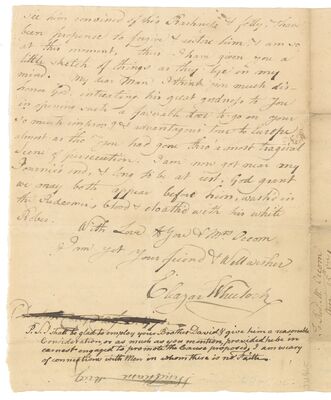 see him convinced of his Rashness & folly, than
been propense to forgive & entire him, & am so
at this moment, thus I have given you a
little sketch of things as they lye in my
mind. My dear Man, I think you much dis-
honor God, in treating his great goodness to you
in opening such a favorable door to go on your
so much improv'd & advantageous tour to Europe
almost as tho' you had gone thro' a most tragical
scene of persecution. I am now got near my
Journies end, & long to be at rest, God grant
we may both appear before him, washed in
the Redeemers blood & cloathed with his white
Robes.
With Love to you & Mrs Occom
I am yet your friend & Wellwisher
Eleazar Wheelock
P.S. I shall be glad to employ your Brother David & give him a reasonable
Consideration, or as much as you mention, provided he be in
earnest engaged to promote the Cause proposed, I am weary
of connections with Men in whom there is no Faith.